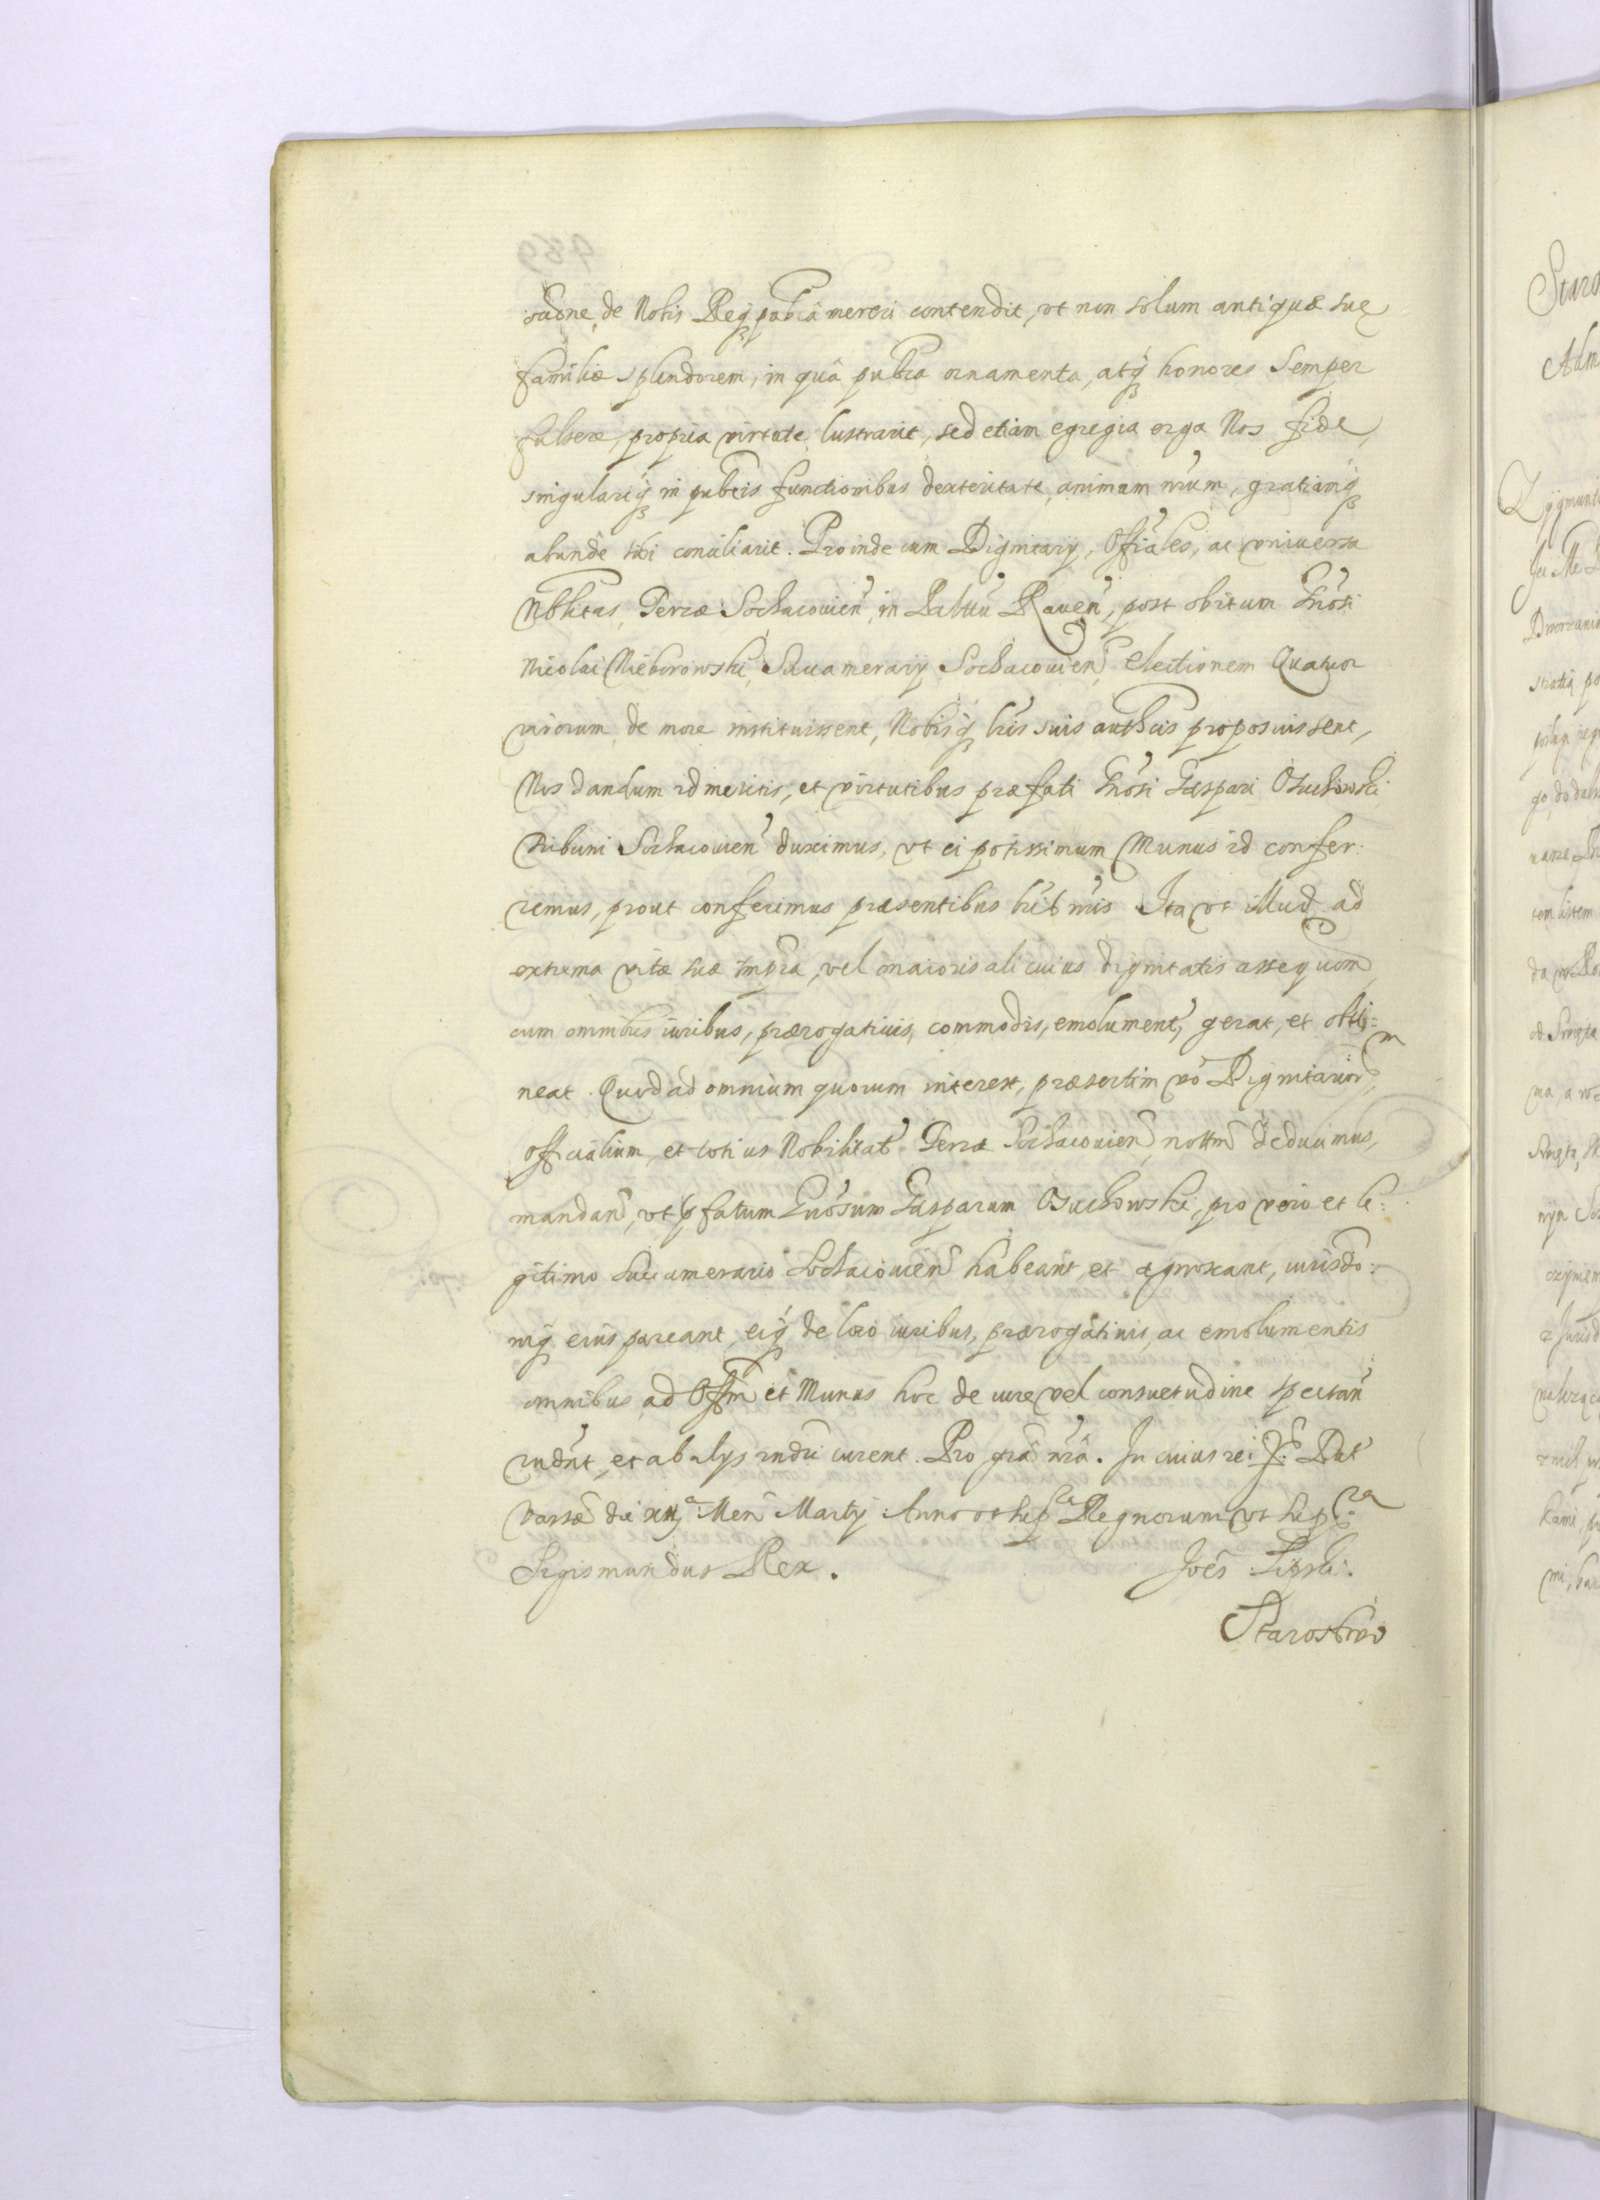 de Nobis Req̃ publicâ mereri contendit, vt non solum antiquæ suæ
familiæ splendorem, in quâ publica ornamenta, atq̃ honores semper
fulsere, propria virtute lustrarit, sed etiam egregia erga Nos fide,
singulariq̃ in publcis functionibus dexteritate, animum nr̃um, gratiamq̃
abunde sibi conciliarit. Proinde cum Dignitarij, Offiales, ac vniuersa
Nobltas Terræ Sochacouien̄, in Pal̃ttũ Rauen̄, post obitum Gñosi
Nicolai Nieborowski, Succamerarij Sochacouien̄, electionem Quatuor
virorum de more instituissent, Nobisq̃ lr̃is suis authcis proposuissent,
Nos dandum id meritis, et virtutibus præfati Gñosi Gaspari Osuchowski
Tribuni Sochacouien̄ duximus, vt ei potissimum Munus id confer:
remus, prout conferimus præsentibus lr̃is nr̃is. Ita vt illud ad
extrema vitæ suæ tmpra, vel maioris alicuius dignitatis assequõm
cum omnibus iuribus, prærogatiuis, commodis, emolument, gerat, et obti:
neat. Quod ad omnium quorum interest, præsertim vō Dignitarior̃m,
officialium, et totius Nobilitat Terræ Sochacouien̄ nottm̃ deducimus,
mandan̄, vt p̃fatum Gñosum Gasparum Osuchowski, pro vero et le:
gitimo Succamerario Sochacouien̄ habeant, et agnoscant, iurisdō:
niq̃ eius pareant, eiq̃ de loco iuribus, prærogatiuis, ac emolumentis
omnibus ad Offm̃ et Munus hoc de iure vel consuetudine spectan̄
rñdñt, et ab alijs rndri curent. Pro grã nr̃a. In cuius rei F: Dat
Varsæ die Men̄ Martij Anno vt supra Regnorum vt supra
Sigismundus Rex. Joẽs Lipski.
Starostwo